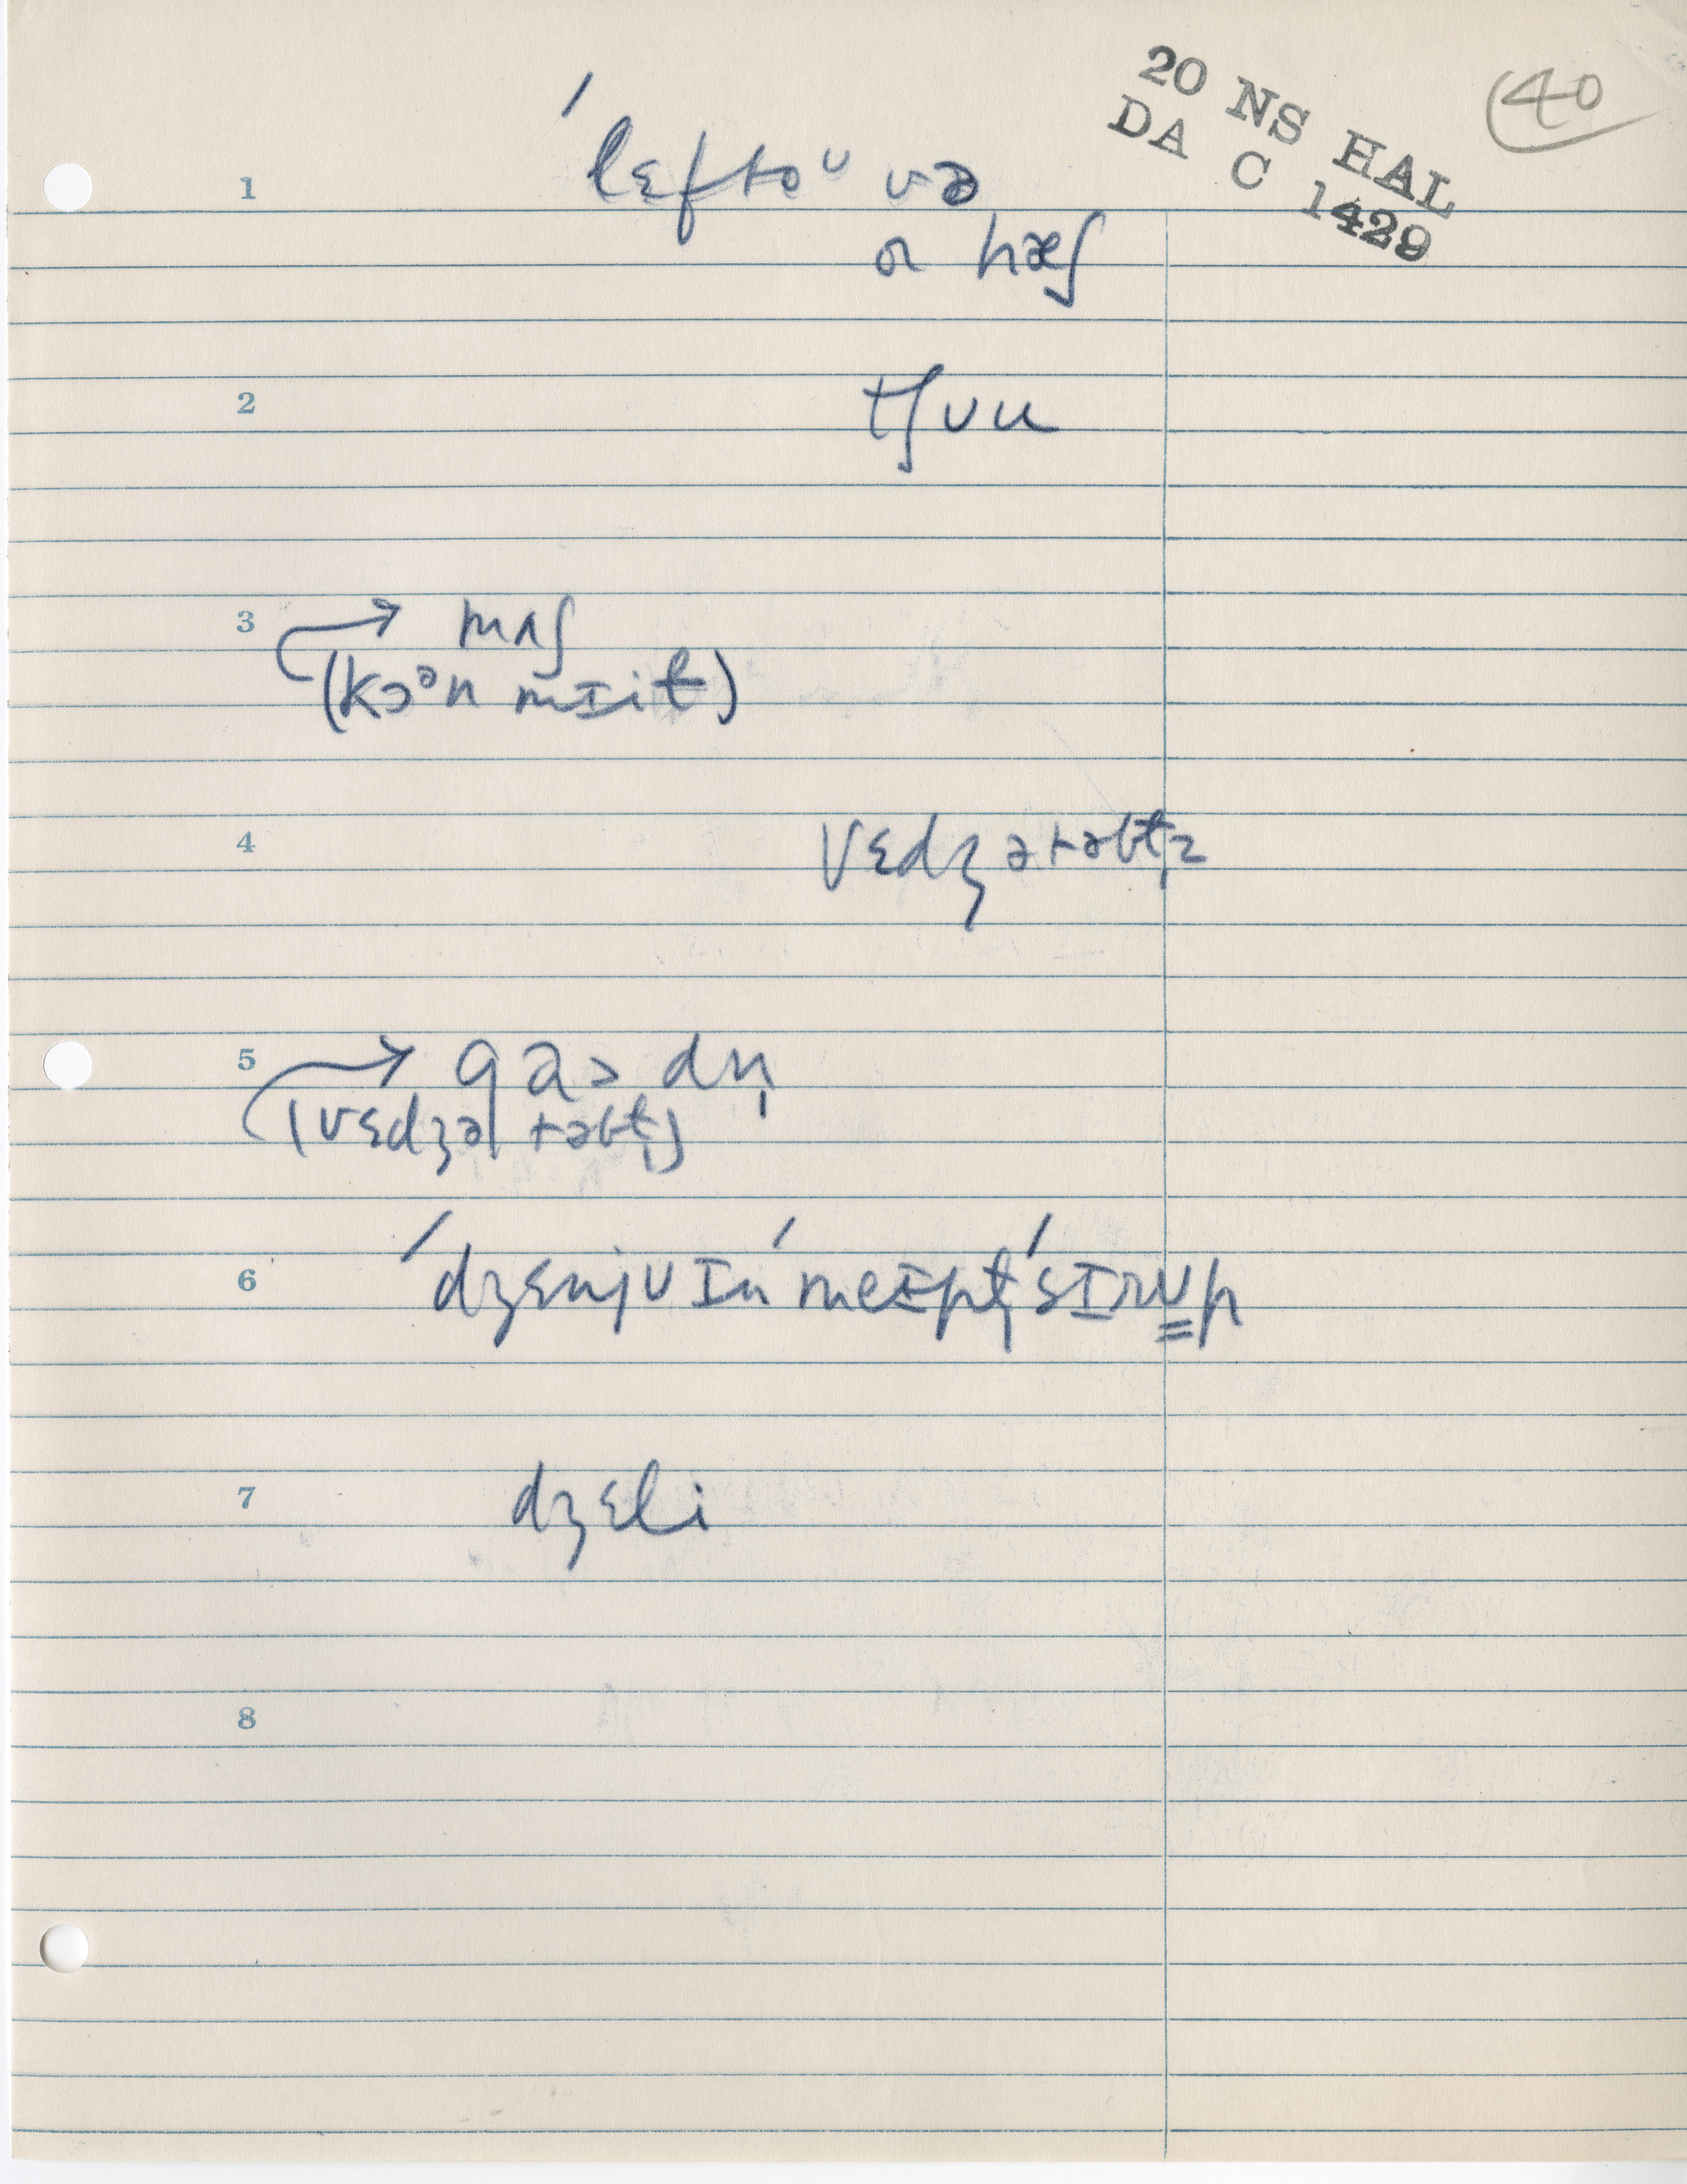 20 NS HAL
DA C 1429
40
1 ˈlɛftoᵁ və
or hæʃ
2 tʃʊu
3 → mʌʃ
(kɔᵊn mɪit)
4 vɛdʒətəbl̩z
5 → gaədn̩
(vɛdʒətəbl̩)
6 ˈdʒɛnjʊɪnˈmeɪpl̩ˈsɪrʊp
7 dʒɛli
8